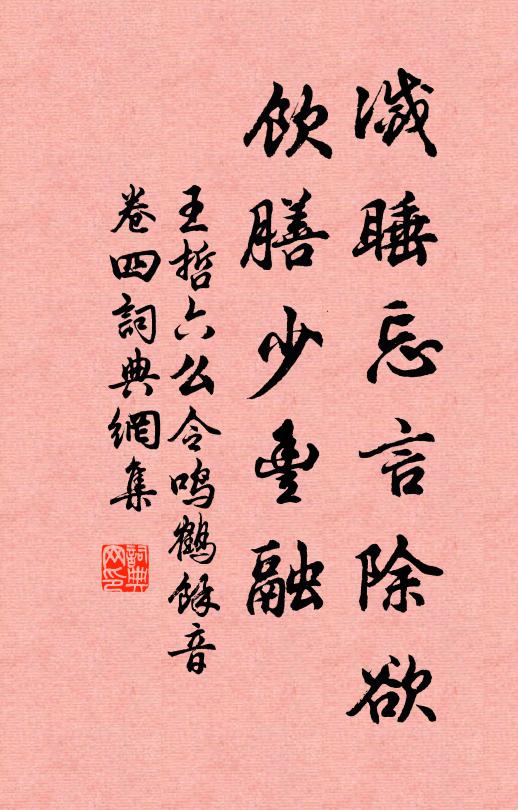 減睡忘言除欲
飲膳少豊融
王哲六么令鳴鶴餘音
卷四詞典網集
詞典網印